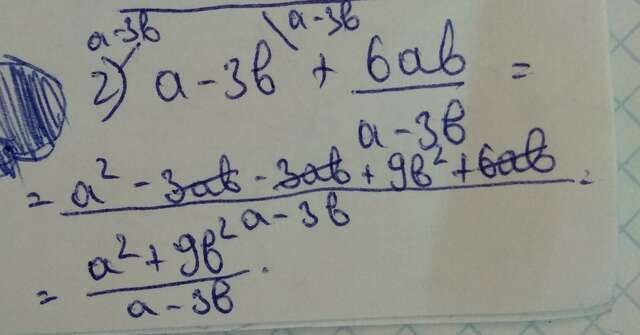 a-3b a-3b
2) a - 3b + 6ab / a - 3b =
= a² - 3ab - 3ab + 9b² + 6ab / a - 3b =
= a² + 9b² / a - 3b .